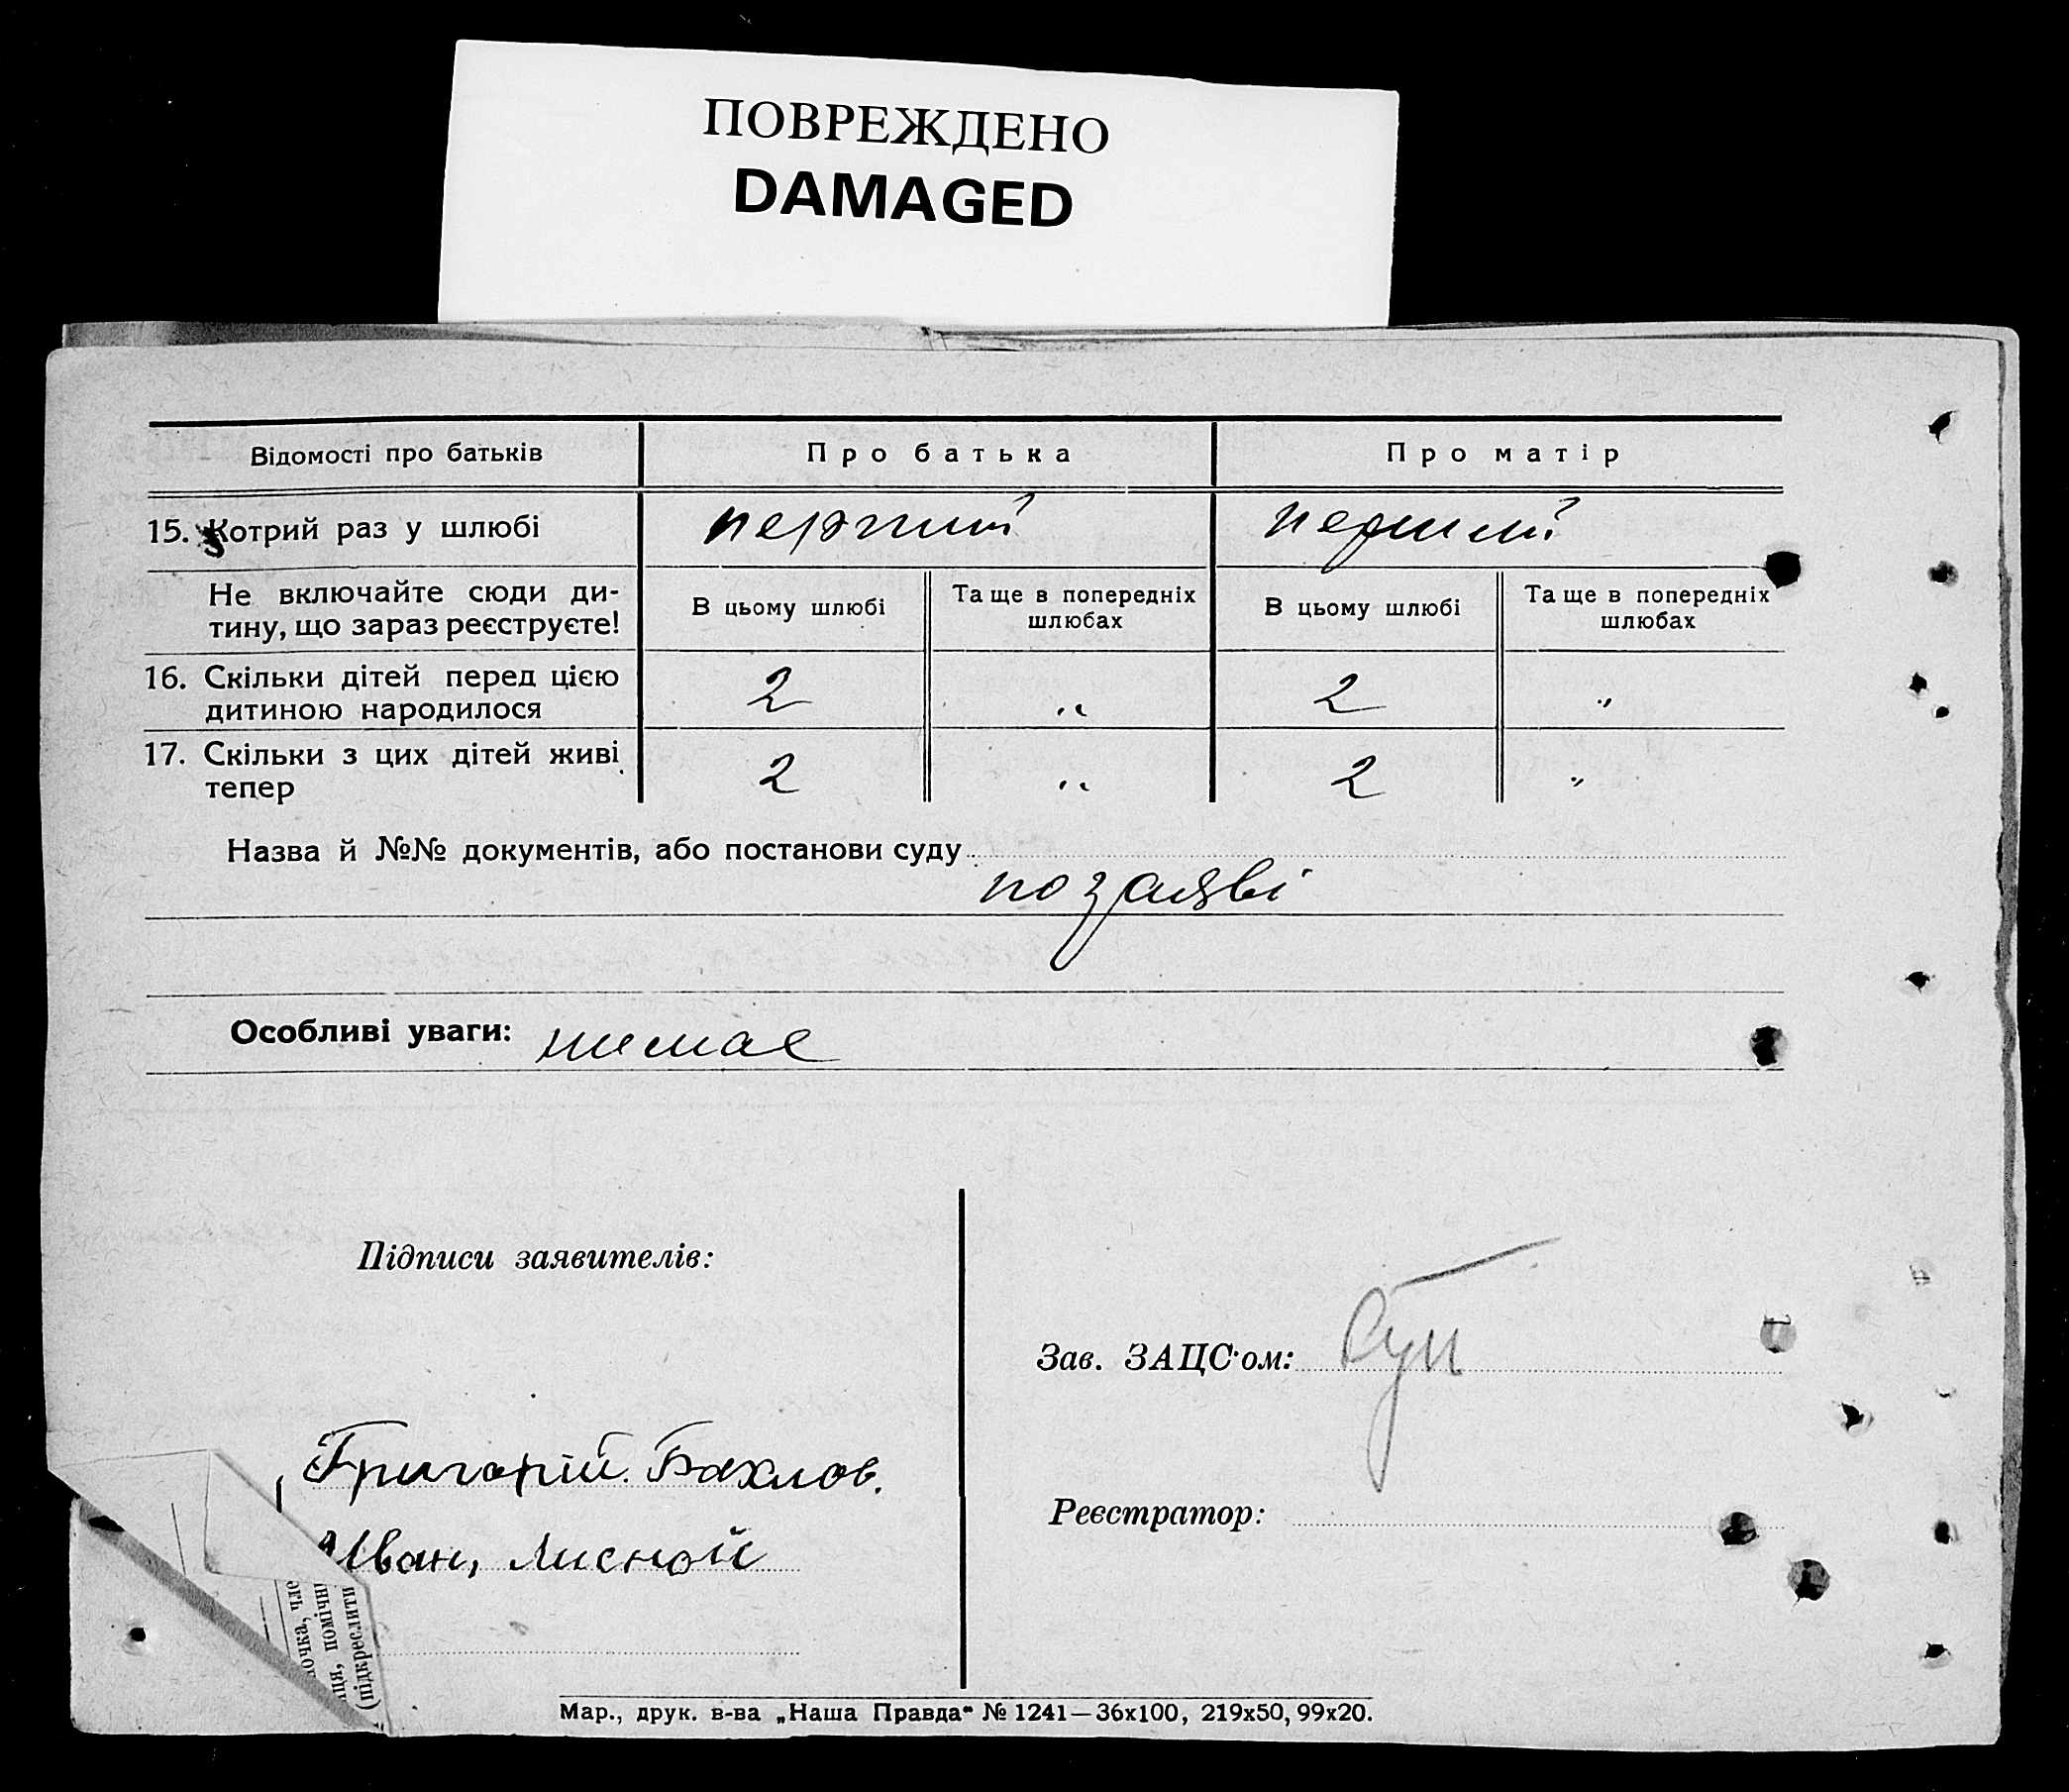 ПОВРЕЖДЕНО
DAMAGED
Відомості про батьків
Про батька
Про матір
15. Котрий раз у шлюбі
перший
перший
Не включайте сюди ди-
тину, що зараз реєструєте!
В цьому шлюбі
Та ще в попередніх
шлюбах
В цьому шлюбі
Та ще в попередніх
шлюбах
16. Скільки дітей перед цією
дитиною народилося
2
"
2
"
17. Скільки з цих дітей живі
тепер
2
"
2
"
Назва й №№ документів, або постанови суду
по заяві
Особливі уваги: немає
Підписи заявителів:
Григорій. Бахлов.
Иван, Лисной
Зав. ЗАЦС'ом:
Реєстратор:
(підкреслити
Мар., друк. в-ва „Наша Правда“ № 1241—36х100, 219х50, 99х20.